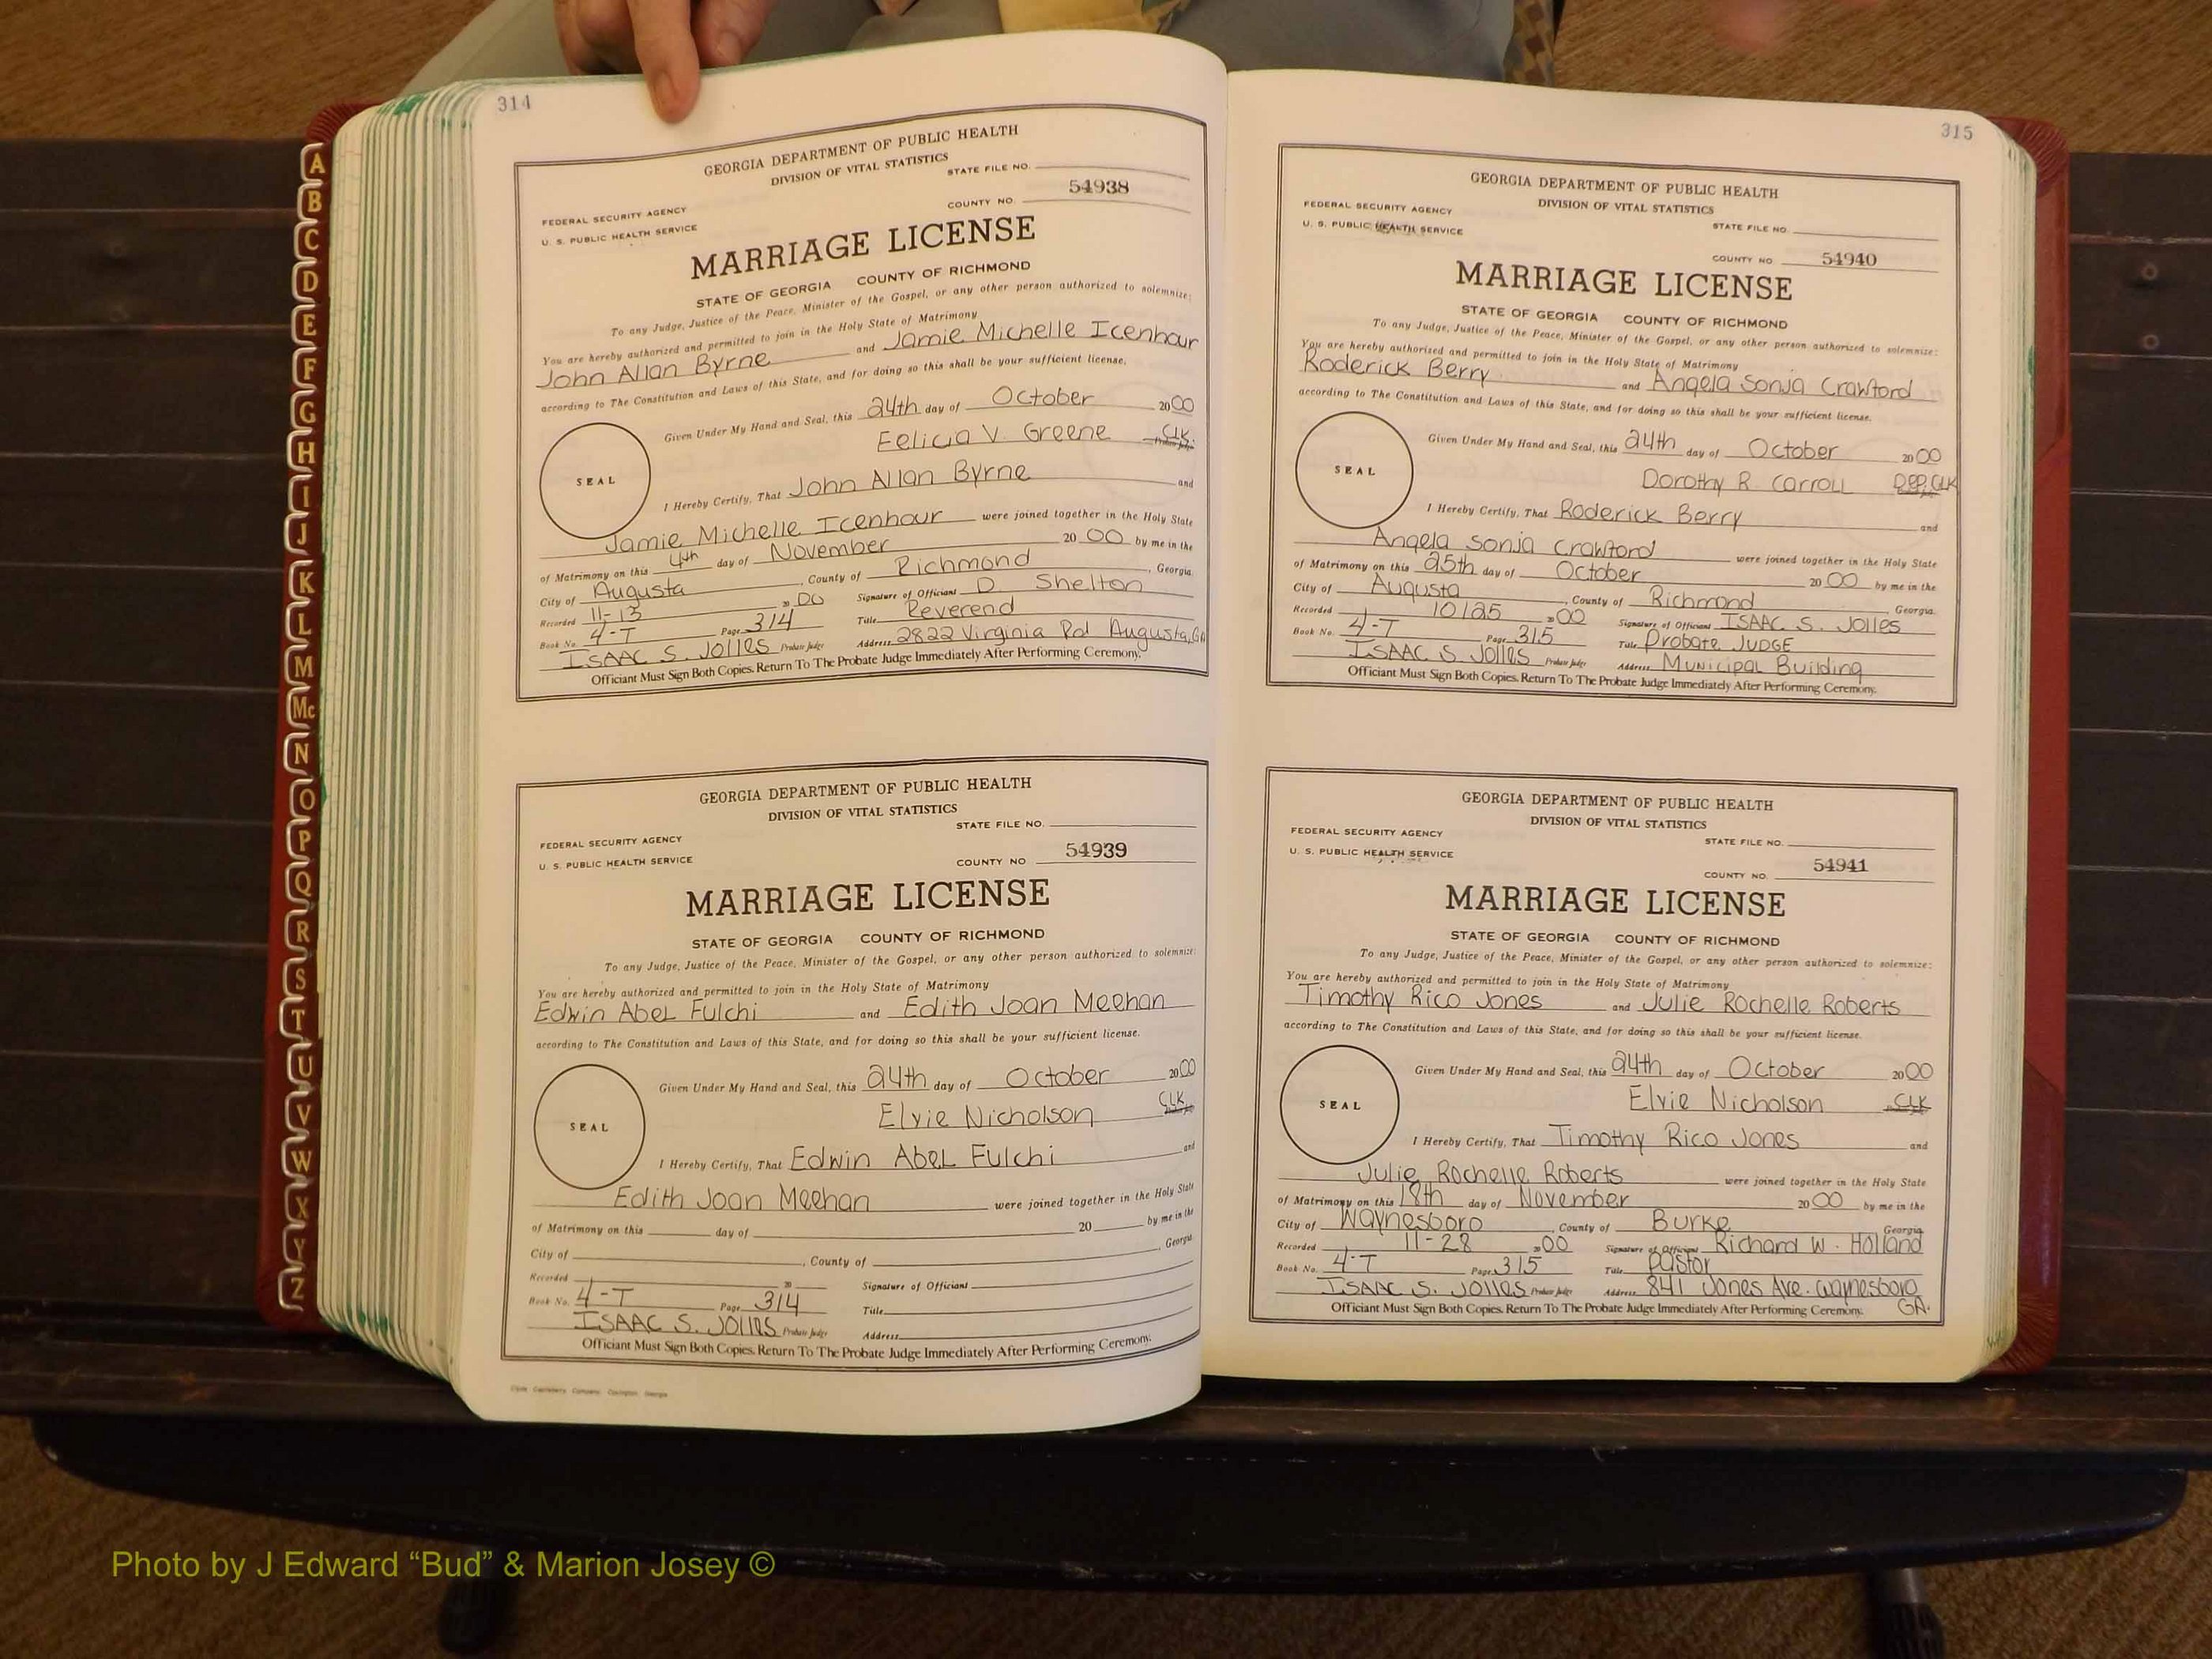 A
B
C
D
E
F
G
H
I
J
K
L
M
Mc
N
O
P
Q
R
S
T
U
V
W
X
Y
Z
314
GEORGIA DEPARTMENT OF PUBLIC HEALTH
DIVISION OF VITAL STATISTICS
STATE FILE NO.
FEDERAL SECURITY AGENCY
U. S. PUBLIC HEALTH SERVICE
COUNTY NO. 54938
MARRIAGE LICENSE
STATE OF GEORGIA COUNTY OF RICHMOND
To any Judge, Justice of the Peace, Minister of the Gospel, or any other person authorized to solemnize:
You are hereby authorized and permitted to join in the Holy State of Matrimony
John Allan Byrne and Jamie Michelle Icenhour
according to The Constitution and Laws of this State, and for doing so this shall be your sufficient license.
Given Under My Hand and Seal, this 24th day of October 2000
Eelicia V. Greene CLK.
SEAL
I Hereby Certify, That John Allan Byrne and
Jamie Michelle Icenhour were joined together in the Holy State
of Matrimony on this 4th day of November 20 00 by me in the
City of Augusta, County of Richmond, Georgia.
Recorded 11-13 20 00 Signature of Official D. Shelton
Book No. 4-T Page 314 Title Reverend
ISAAC S. Jolles Probate Judge Address 2822 Virginia Rd Augusta, GA
Officiant Must Sign Both Copies. Return To The Probate Judge Immediately After Performing Ceremony.
GEORGIA DEPARTMENT OF PUBLIC HEALTH
DIVISION OF VITAL STATISTICS
STATE FILE NO.
FEDERAL SECURITY AGENCY
U. S. PUBLIC HEALTH SERVICE
COUNTY NO 54939
MARRIAGE LICENSE
STATE OF GEORGIA COUNTY OF RICHMOND
To any Judge, Justice of the Peace, Minister of the Gospel, or any other person authorized to solemnize:
You are hereby authorized and permitted to join in the Holy State of Matrimony
Edwin Abel Fulchi and Edith Joan Meehan
according to The Constitution and Laws of this State, and for doing so this shall be your sufficient license.
Given Under My Hand and Seal, this 24th day of October 2000
Elvie Nicholson CLK
SEAL
I Hereby Certify, That Edwin Abel Fulchi and
Edith Joan Meehan were joined together in the Holy State
of Matrimony on this day of 20 by me in the
City of , County of , Georgia
Recorded 20 Signature of Official
Book No. 4-T Page 314 Title
ISAAC S. Jolles Probate Judge Address
Officiant Must Sign Both Copies. Return To The Probate Judge Immediately After Performing Ceremony.
315
GEORGIA DEPARTMENT OF PUBLIC HEALTH
DIVISION OF VITAL STATISTICS
FEDERAL SECURITY AGENCY
U. S. PUBLIC HEALTH SERVICE
STATE FILE NO.
COUNTY NO 54940
MARRIAGE LICENSE
STATE OF GEORGIA COUNTY OF RICHMOND
To any Judge, Justice of the Peace, Minister of the Gospel, or any other person authorized to solemnize:
You are hereby authorized and permitted to join in the Holy State of Matrimony
Roderick Berry and Angela Sonja Crawford
according to The Constitution and Laws of this State, and for doing so this shall be your sufficient license.
Given Under My Hand and Seal, this 24th day of October 2000
Dorothy R. Carroll Dep. CLK
SEAL
I Hereby Certify, That Roderick Berry and
Angela Sonja Crawford were joined together in the Holy State
of Matrimony on this 25th day of October 20 00 by me in the
City of Augusta, County of Richmond, Georgia.
Recorded 10/25 20 00 Signature of Official ISAAC S. Jolles
Book No. 4-T Page 315 Title Probate JUDGE
ISAAC S. Jolles Probate Judge Address Municipal Building
Officiant Must Sign Both Copies. Return To The Probate Judge Immediately After Performing Ceremony.
GEORGIA DEPARTMENT OF PUBLIC HEALTH
DIVISION OF VITAL STATISTICS
FEDERAL SECURITY AGENCY
U. S. PUBLIC HEALTH SERVICE
STATE FILE NO.
COUNTY NO. 54941
MARRIAGE LICENSE
STATE OF GEORGIA COUNTY OF RICHMOND
To any Judge, Justice of the Peace, Minister of the Gospel, or any other person authorized to solemnize:
You are hereby authorized and permitted to join in the Holy State of Matrimony
Timothy Rico Jones and Julie Rochelle Roberts
according to The Constitution and Laws of this State, and for doing so this shall be your sufficient license.
Given Under My Hand and Seal, this 24th day of October 2000
Elvie Nicholson CLK
SEAL
I Hereby Certify, That Timothy Rico Jones and
Julie Rochelle Roberts were joined together in the Holy State
of Matrimony on this 18th day of November 20 00 by me in the
City of Waynesboro, County of Burke Georgia
Recorded 11-28 20 00 Signature of Official Richard W. Holland
Book No. 4-T Page 315 Title Pastor
ISAAC S. Jolles Probate Judge Address 841 Jones Ave. Waynesboro
GA.
Officiant Must Sign Both Copies. Return To The Probate Judge Immediately After Performing Ceremony.
Photo by J Edward “Bud” & Marion Josey ©